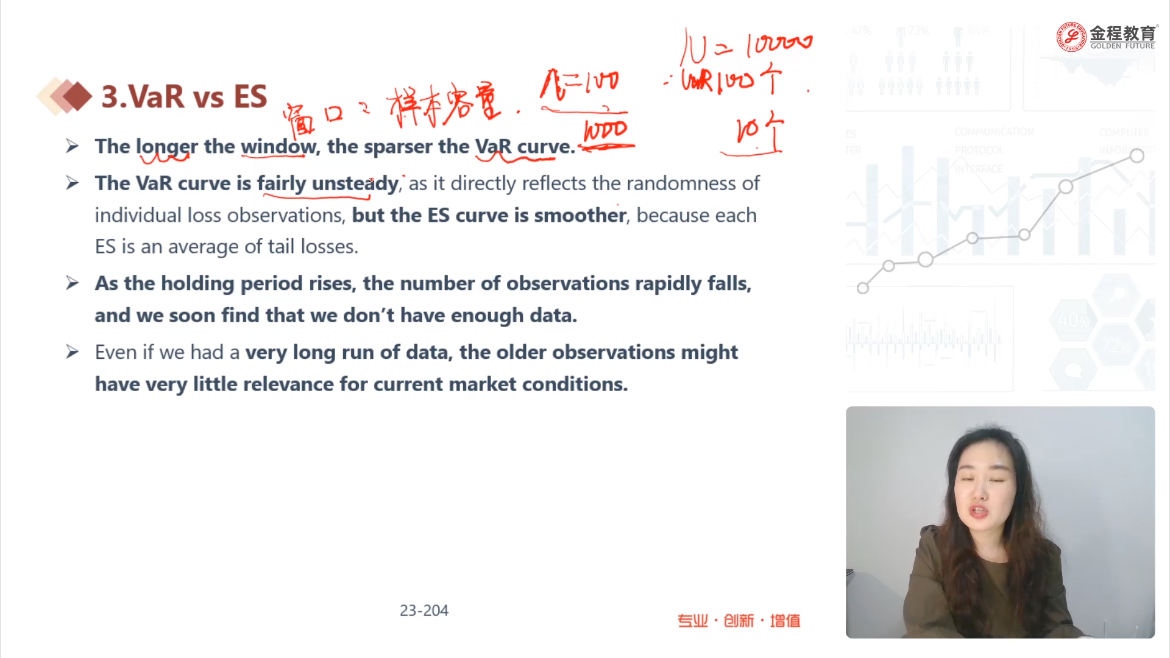 金程教育
GOLDEN FUTURE
N = 10000
VaR 100个
10个
3.VaR vs ES
窗口: 样本容量.
n=100
1000
➢ The longer the window, the sparser the VaR curve.
➢ The VaR curve is fairly unsteady, as it directly reflects the randomness of
individual loss observations, but the ES curve is smoother, because each
ES is an average of tail losses.
➢ As the holding period rises, the number of observations rapidly falls,
and we soon find that we don't have enough data.
➢ Even if we had a very long run of data, the older observations might
have very little relevance for current market conditions.
COMMUNICATION
PROTOCOL
INTERFACE
23-204
专业·创新·增值